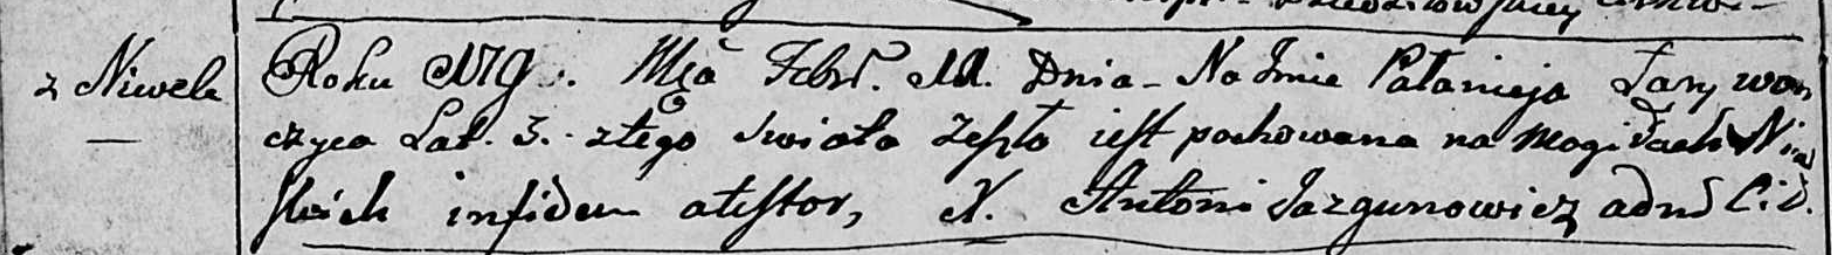 z Niwek
Roku 179 . Mca Febr. 11. Dnia - Na Imie Pałanieja Łarywon
czyca Lat. 3. ztego Swiata Zeszła iest pochowana na Mogiłach Niw
skich infidem atestor, X. Antoni Jazgunowicz adm